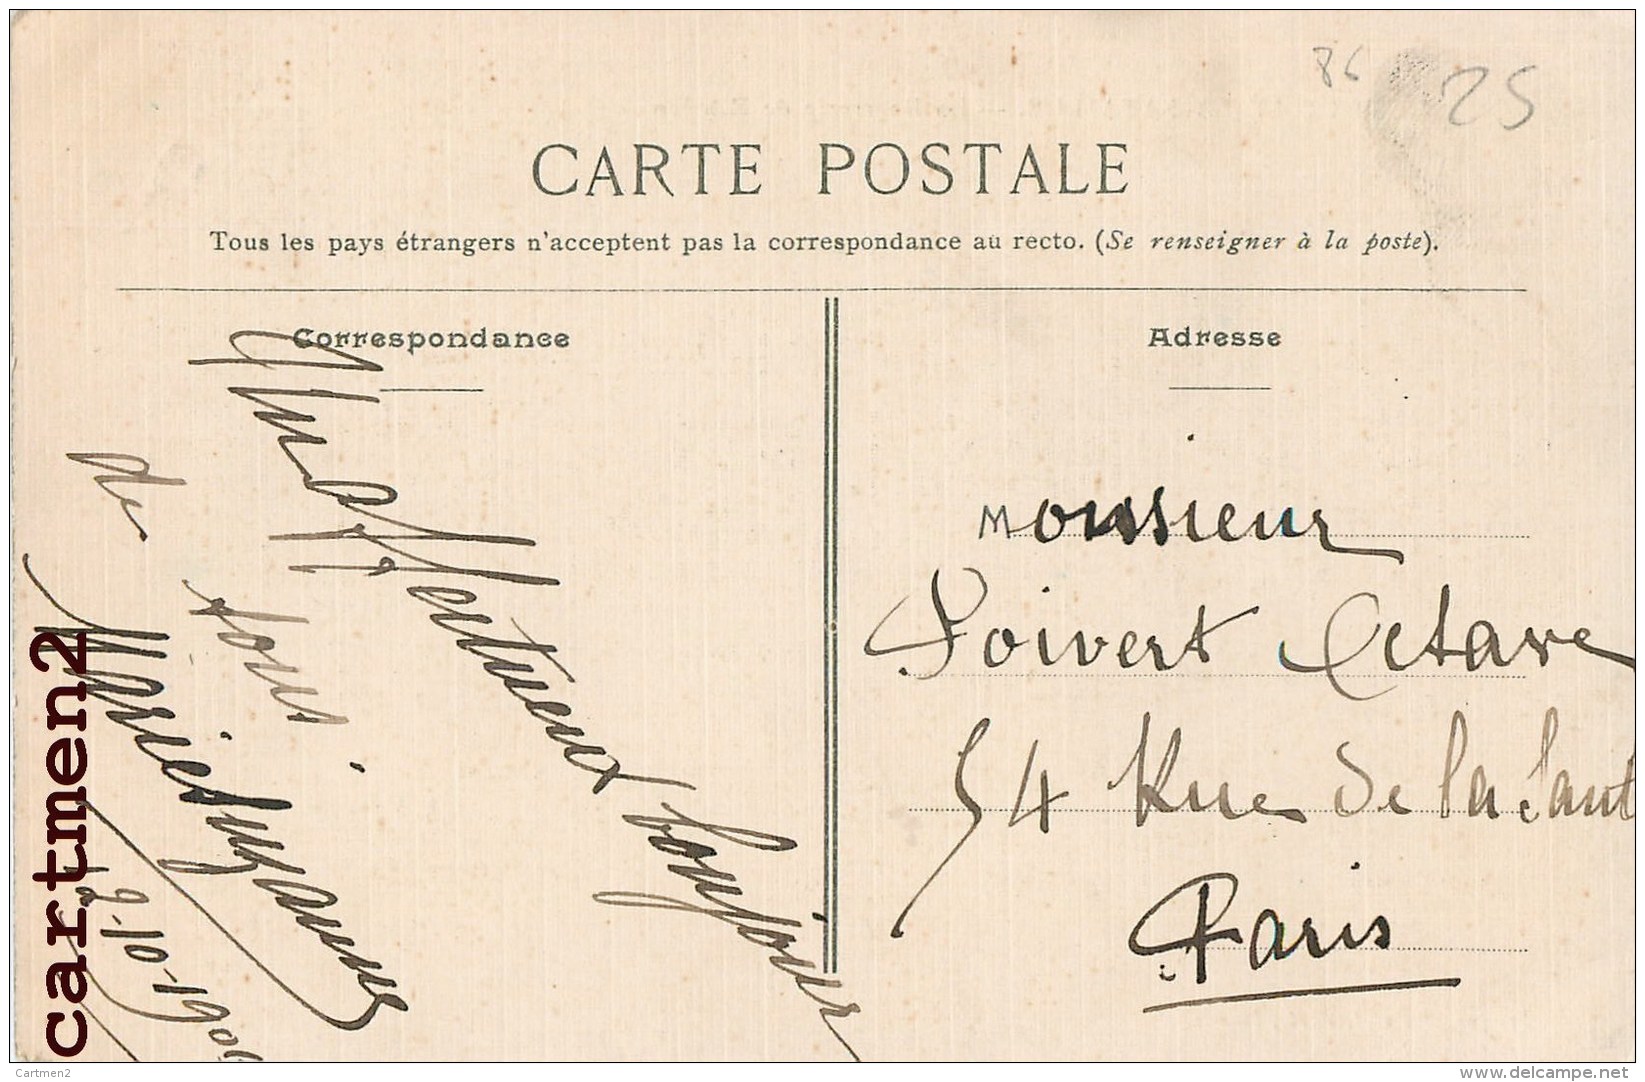 86
25
CARTE POSTALE
Tous les pays étrangers n'acceptent pas la correspondance au recto. (Se renseigner à la poste).
Correspondance
Un affectueux bonjour
de tous
12-10-190
Adresse
Monsieur
Poivert Octave
54 Rue de la Sant
Paris
cartmen2
Cartmen2
delcampe.net